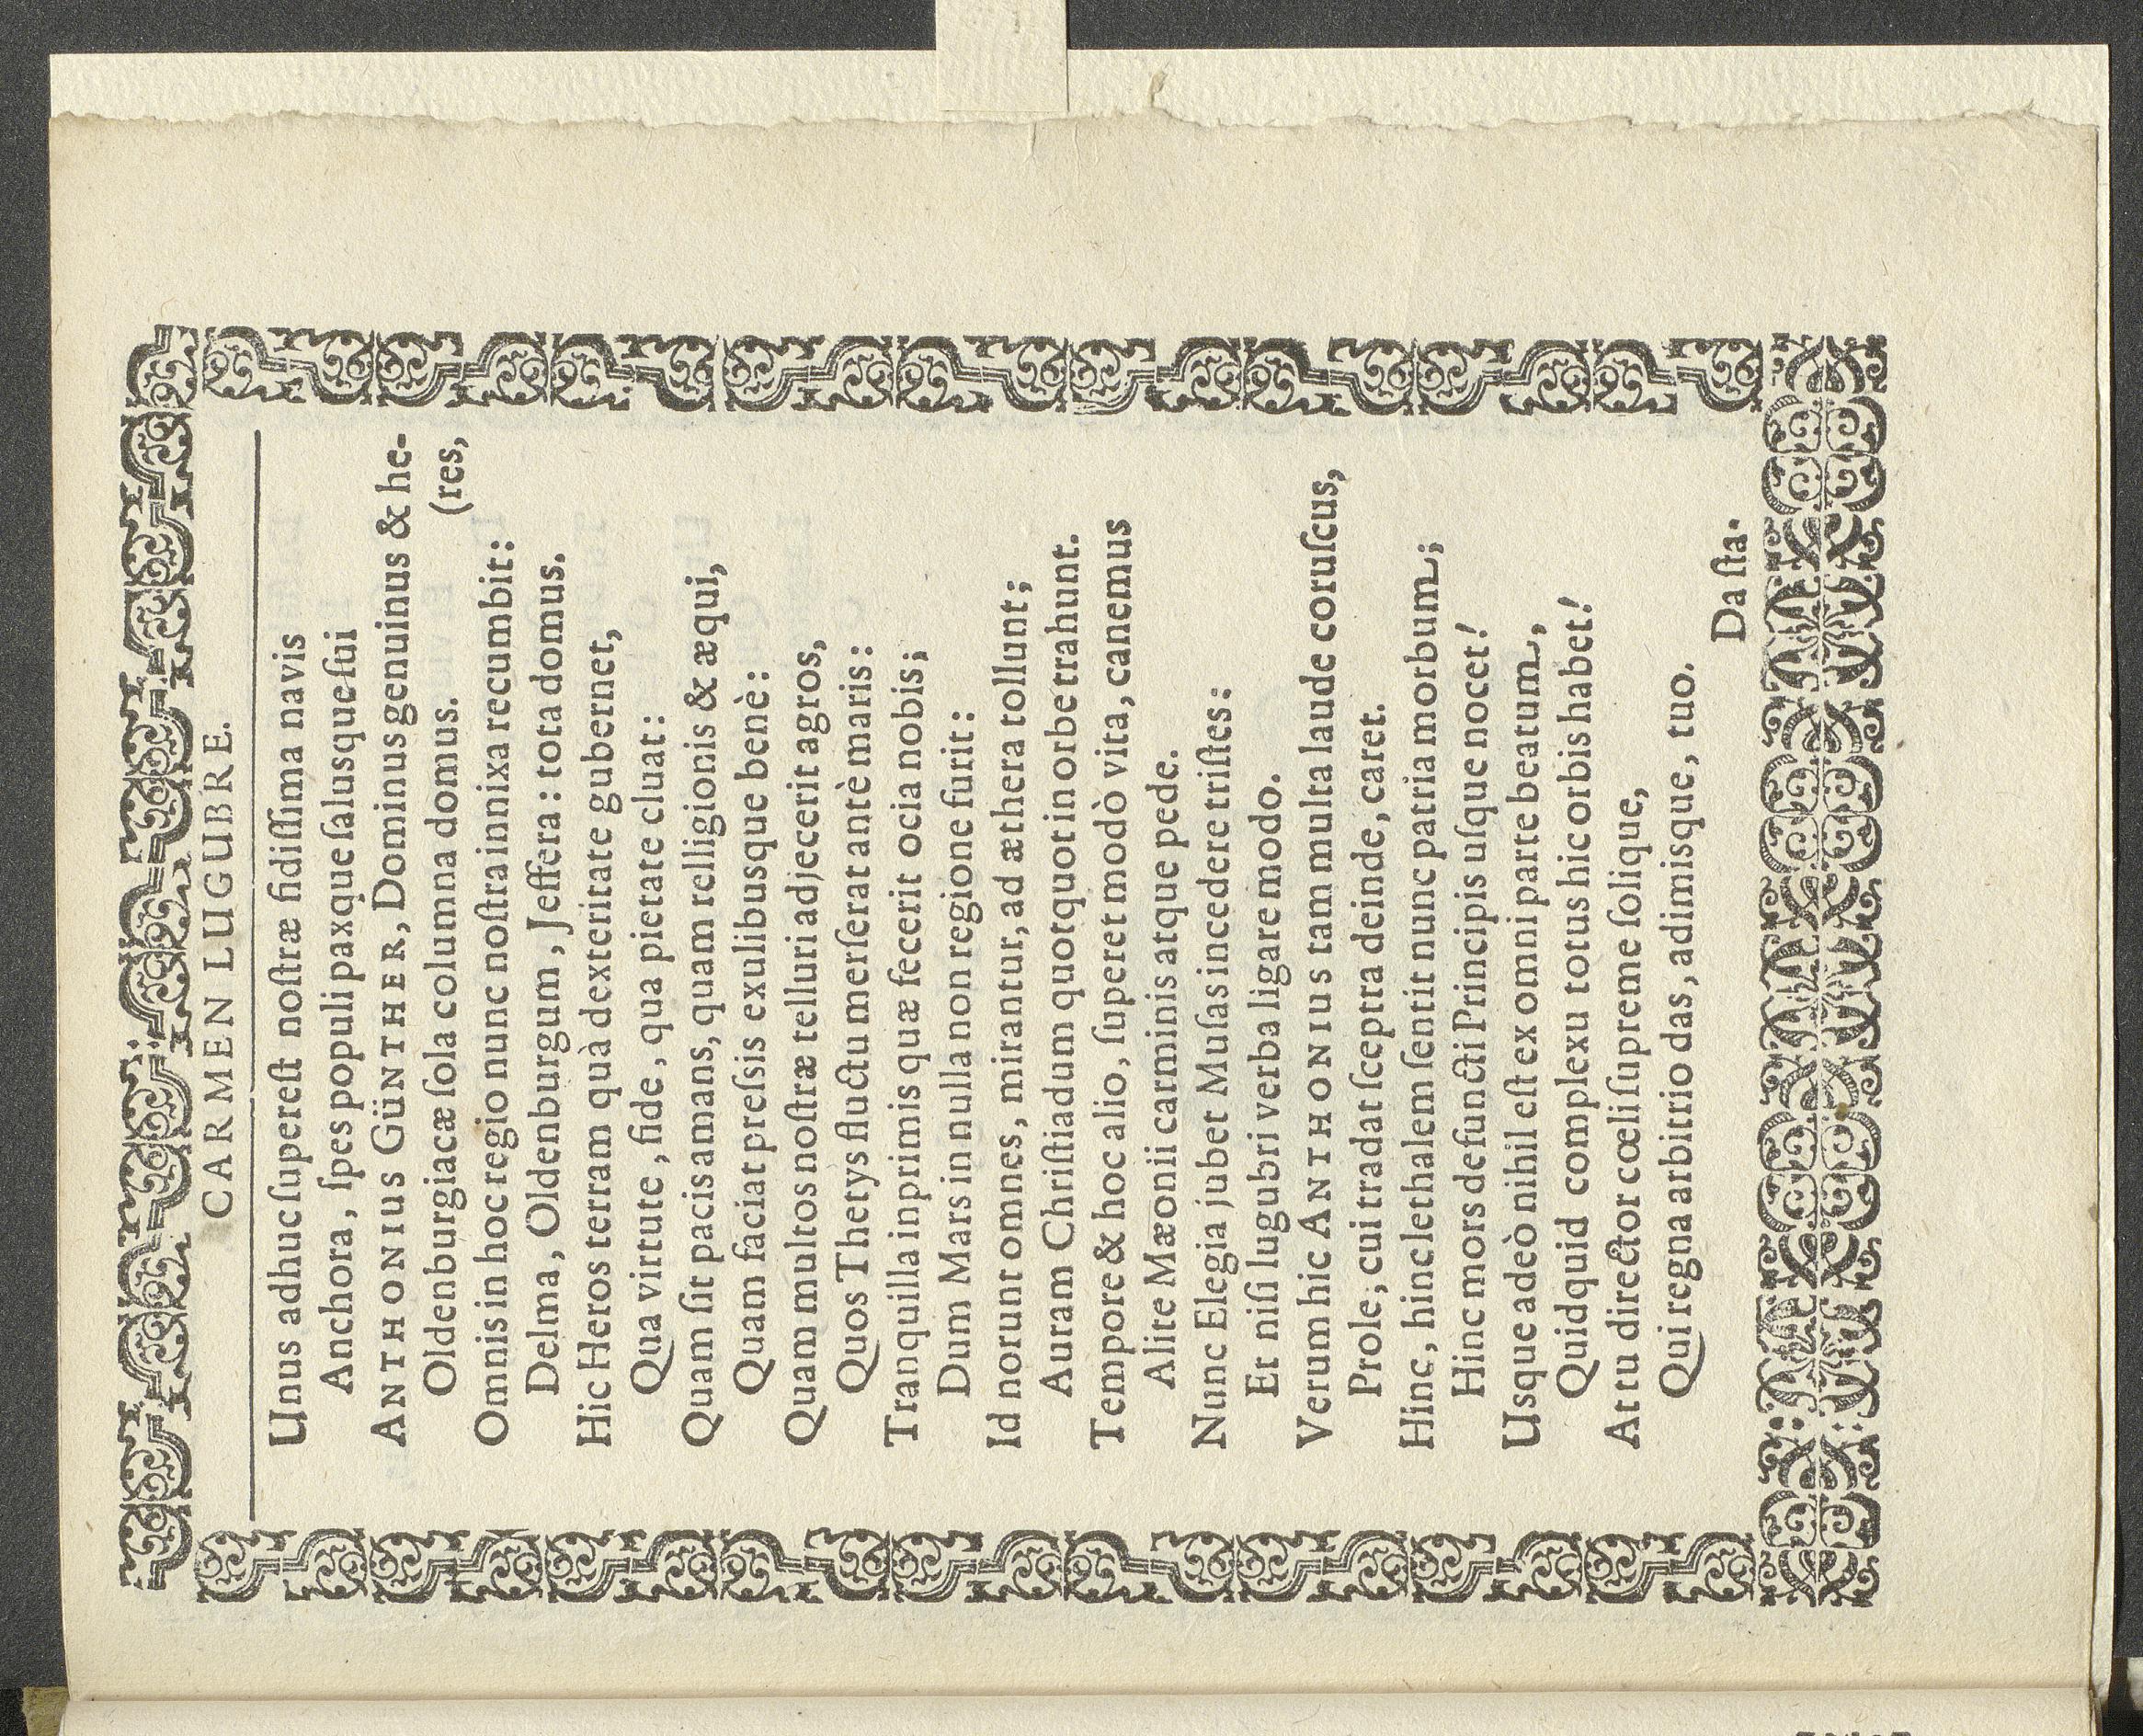 CARMEN LUGUBRE.
Unus adhuc ſupereſt noſtræ fidiſſima navis
Anchora, ſpes populi paxque ſalusque ſui
ANTHONIUS GÜNTHER, Dominus genuinus & he-
(res,
Oldenburgiacæ ſola columna domus.
Omnis in hoc regio nunc noſtra innixa recumbit:
Delma, Oldenburgum, Jeffera: tota domus.
Hic Heros terram quà dexteritate gubernet,
Qua virtute, fide, qua pietate cluat:
Quam ſit pacis amans, quam relligionis & æqui,
Quam faciat preſsis exulibusque benè:
Quam multos noſtræ telluri adjecerit agros,
Quos Thetys fluctu merſerat antè maris:
Tranquilla inprimis quæ fecerit ocia nobis;
Dum Mars in nulla non regione furit:
Id norunt omnes, mirantur, ad æthera tollunt;
Auram Chriſtiadum quotquot in orbe trahunt.
Tempore & hoc alio, ſuperet modò vita, canemus
Alite Mæonii carminis atque pede.
Nunc Elegia jubet Muſas incedere triſtes:
Et niſi lugubri verba ligare modo.
Verum hic ANTHONIUS tam multa laude coruſcus,
Prole; cui tradat ſceptra deinde, caret.
Hinc, hinc lethalem ſentit nunc patria morbum;
Hinc mors defuncti Principis uſque nocet!
Usque adeò nihil eſt ex omni parte beatum,
Quidquid complexu totus hic orbis habet!
At tu director cœli ſupreme ſolique,
Qui regna arbitrio das, adimisque, tuo.
Da ſta-